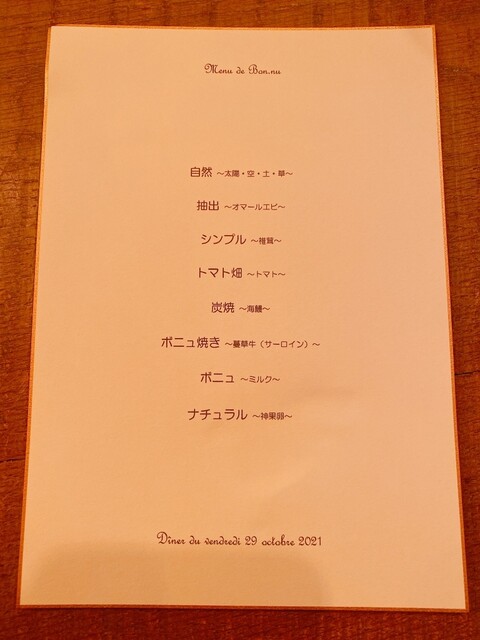 Menu de Bon.nu
自然 ～太陽・空・土・草～
抽出 ～オマールエビ～
シンプル ～椎茸～
トマト畑 ～トマト～
炭焼 ～海鰻～
ボニュ焼き ～蔓草牛（サーロイン）～
ボニュ ～ミルク～
ナチュラル ～神果卵～
Dîner du vendredi 29 octobre 2021